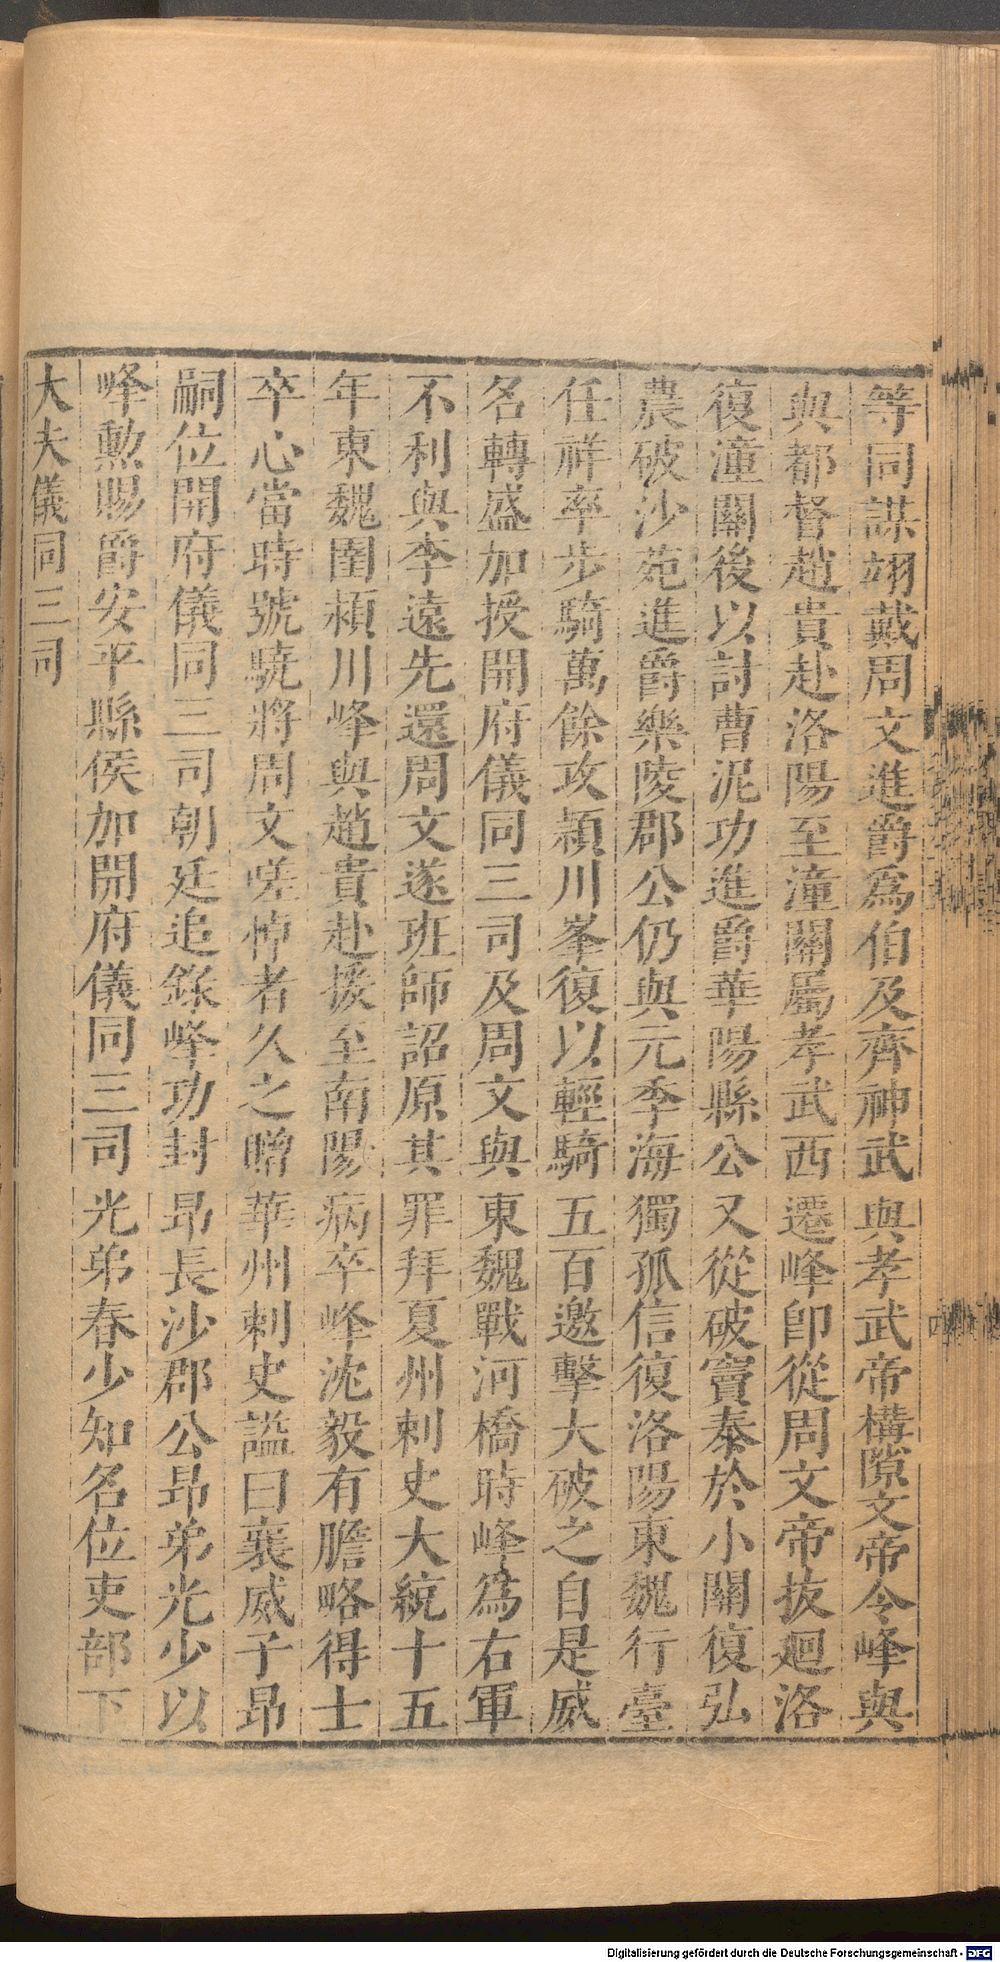 等同謀翊戴周文進爵爲伯及齊神武與孝武帝構隙文帝令峰與
與都督趙貴赴洛陽至潼關屬孝武西遷峰卽從周文帝拔廻洛
復潼關後以討曹泥功進爵華陽縣公又從破竇泰於小關復弘
農破沙苑進爵樂陵郡公仍與元季海獨孤信復洛陽東魏行臺
任祥率步騎萬餘攻潁川峯復以輕騎五百邀擊大破之自是威
名轉盛加授開府儀同三司及周文與東魏戰河橋時峰爲右軍
不利與李遠先還周文遂班師詔原其罪拜夏州刺史大統十五
年東魏圍潁川峰與趙貴赴援至南陽病卒峰沈毅有膽略得士
卒心當時號驍將周文嗟悼者久之贈華州刺史謚曰襄威子昂
嗣位開府儀同三司朝廷追錄峰功封昂長沙郡公昂弟光少以
峰勲賜爵安平縣侯加開府儀同三司光弟春少知名位吏部下
大夫儀同三司
四
Digitalisierung gefördert durch die Deutsche Forschungsgemeinschaft - DFG